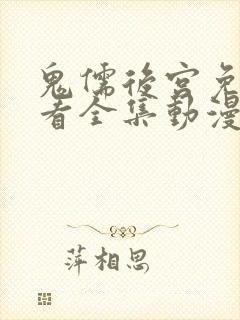 鬼儒後宮免
看全集動漫
萍相思